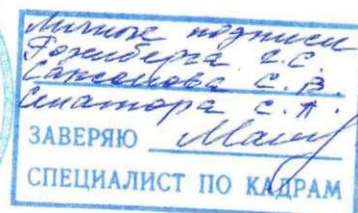 Личные подписи
Розенберга Г.С.
Саксонова С.В.
Сенатора С.А.
ЗАВЕРЯЮ
СПЕЦИАЛИСТ ПО КАДРАМ